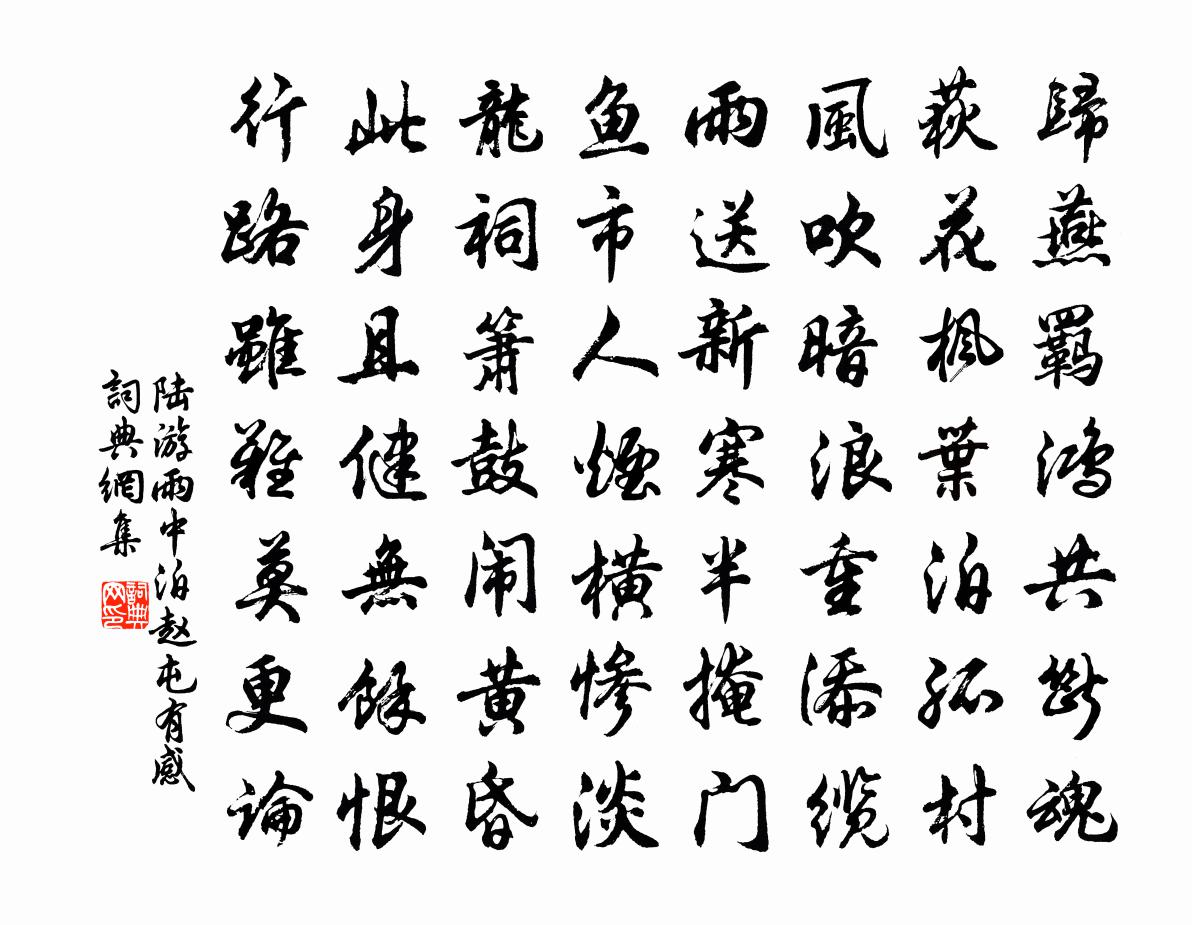 歸燕羁鴻共斷魂
荻花楓葉泊孤村
風吹暗浪重添缆
雨送新寒半掩门
鱼市人煙橫慘淡
龍祠簫鼓闹黄昏
此身且健無餘恨
行路雖難莫更論
陆游雨中泊赵屯有感
詞典網集
詞典网印